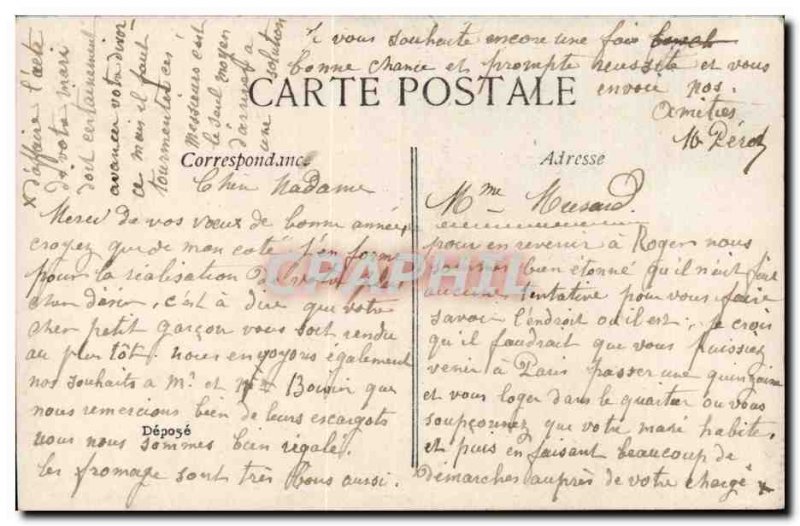 CARTE POSTALE
Correspondance
Adresse
Cher Madame
Merci de vos vœux de bonne année,
croyez que de mon coté j'en forme
pour la réalisation de votre plus
cher désir, c'est à dire que votre
cher petit garçon vous soit rendu
au plus tôt. nous envoyons également
nos souhaits à Mr et Me Boivin que
nous remercions bien de leurs escargots
nous nous sommes bien régalé.
les fromage sont très bons aussi.
Déposé
Mme
pour en revenir à Roger nous
sommes bien étonné qu'il n'ait fait
aucune tentative pour vous faire
savoir l'endroit ou il est, je crois
qu'il faudrait que vous puissiez
venir à Paris passer une quinzaine
et vous loger dans le quartier ou vous
soupçonnez que votre mari habite,
et puis en faisant beaucoup de
démarches auprès de votre chargé x
x d'affaire l'acte
de votre mari
doit certainement
avancer votre divor
ce mais il faut
tourmenter ces
Messieurs c'est
le seul moyen
d'arriver à
une solution
Je vous souhaite encore une fois
bonne chance et prompte réussite et vous
envoie nos
Amitiés
CPAPHIL